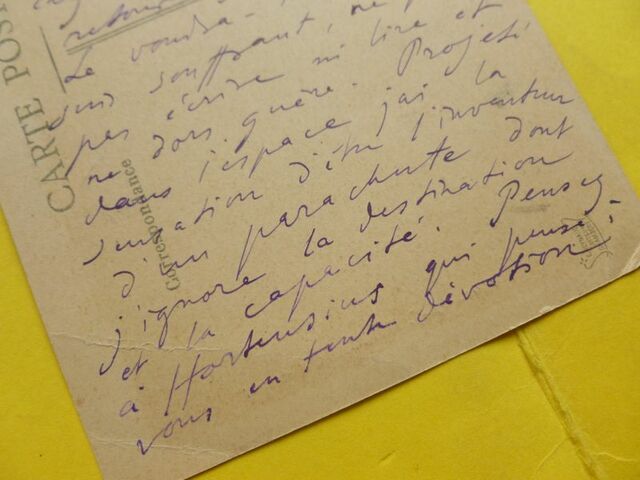 CARTE POS
Correspondance
retour
Le voudra
suis souffrant, ne
pas écrire ni lire et
ne dors guère. Projeté
dans l'espace j'ai la
sensation d'être l'inventeur
d'un parachute dont
j'ignore la destination
et la capacité. Pensez
à Hortensius qui pense à
vous en toute dévotion